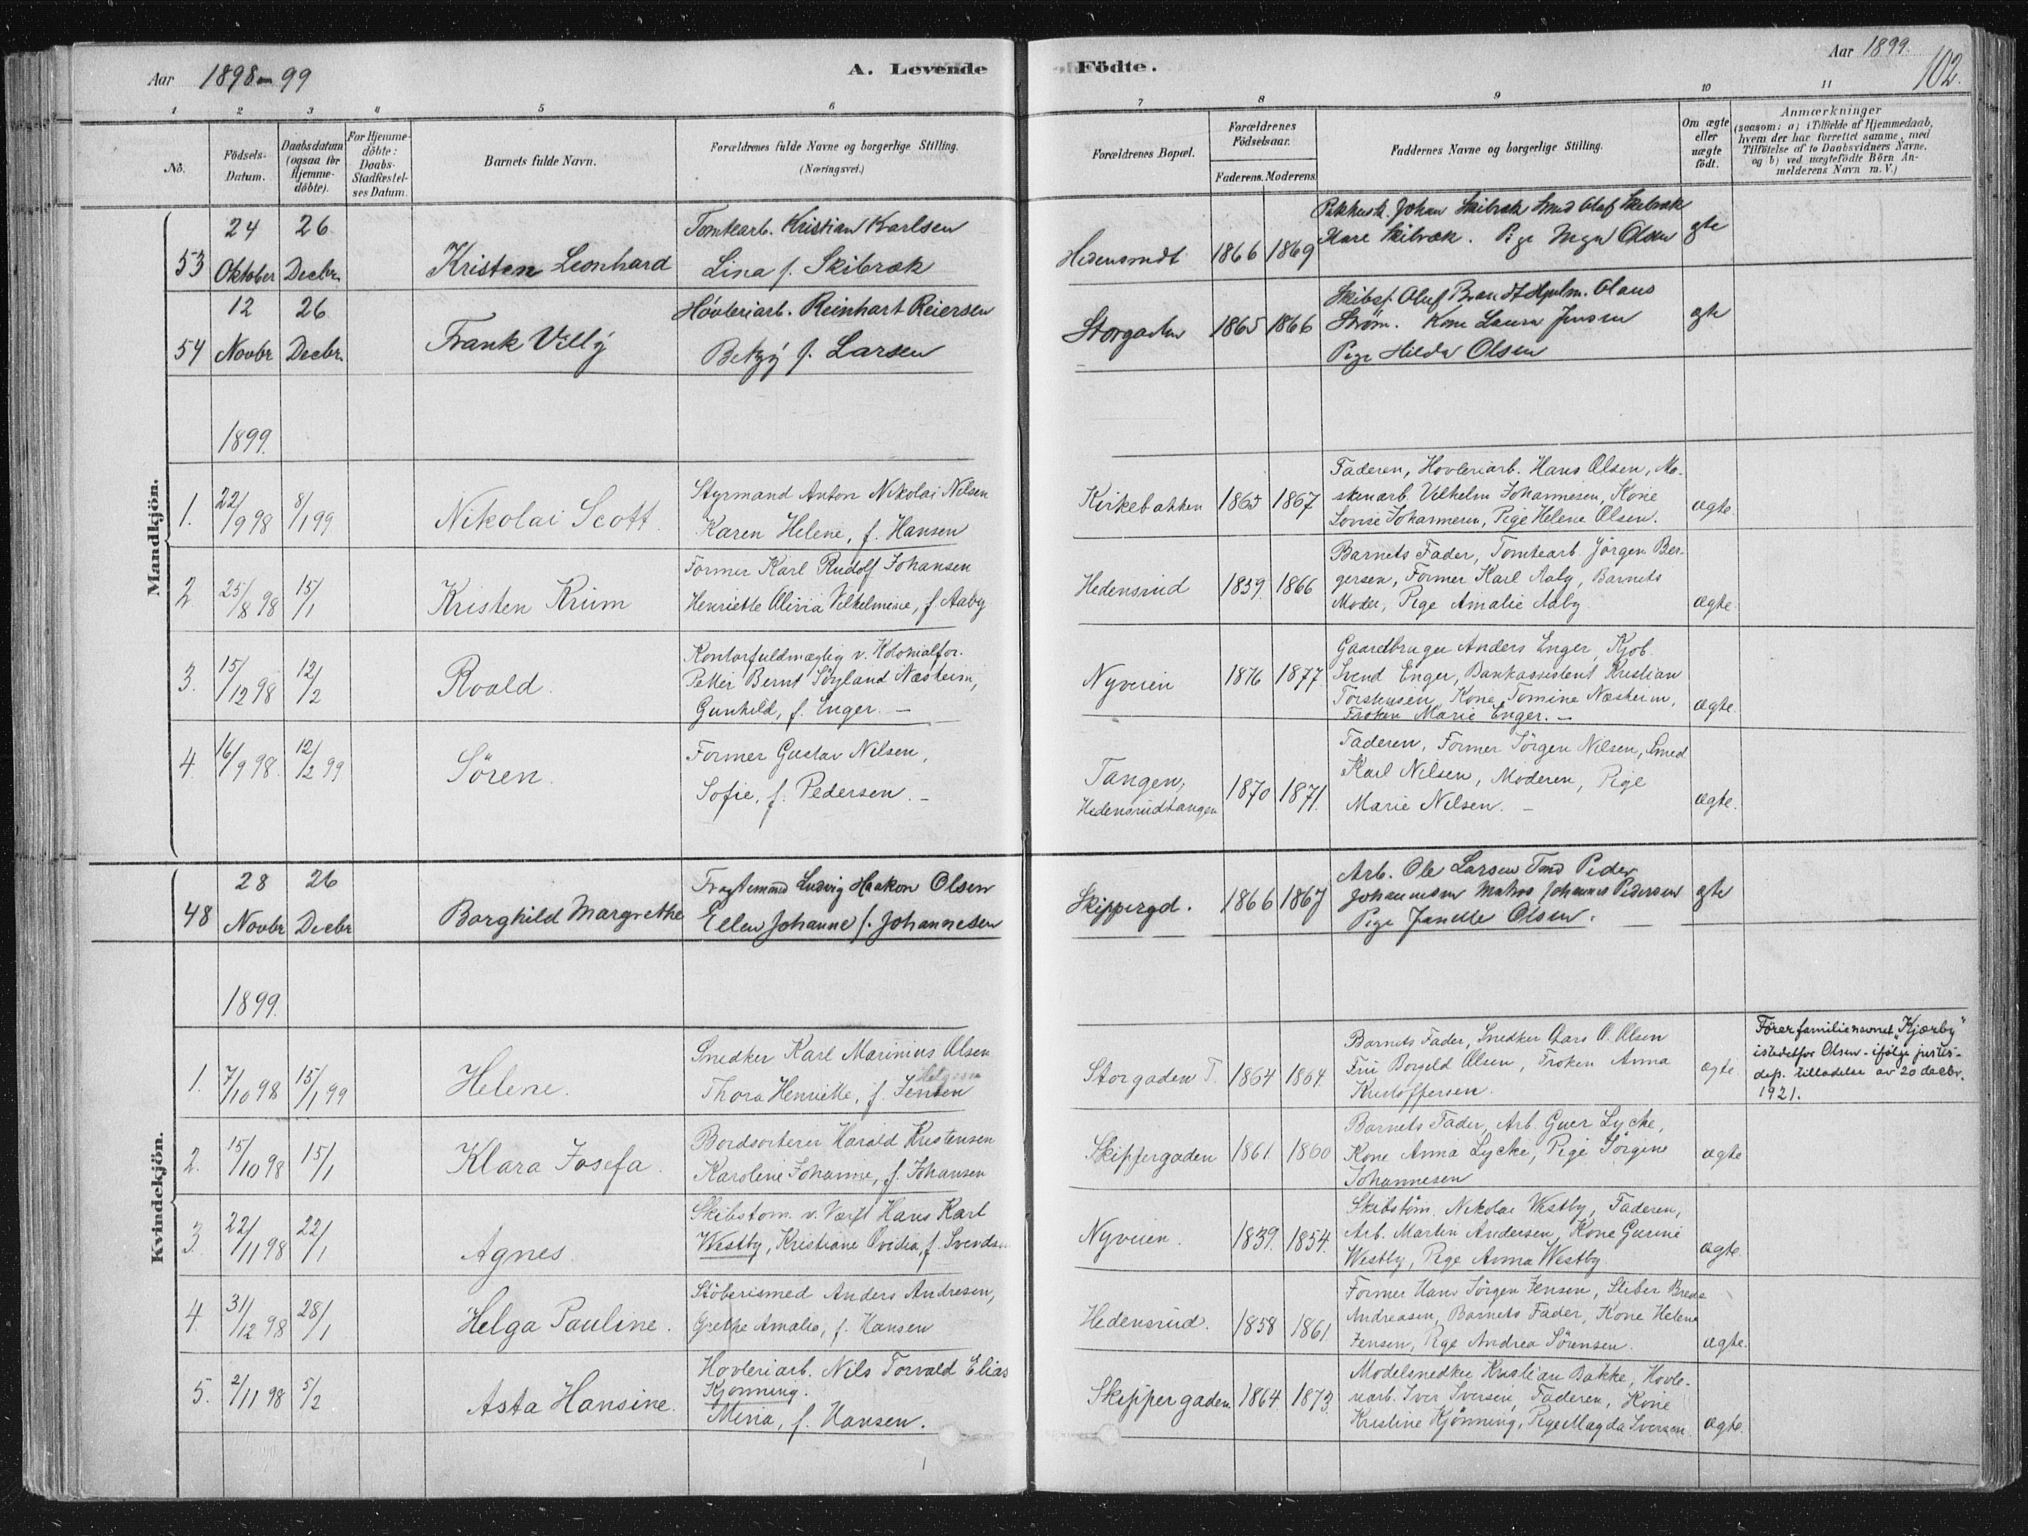 Aar 1898-99
A. Levende Födte.
Aar 1899.
102.
1 2 3 4 5 6 7 8 9 10 11
No.
Födsels-Datum.
Daabsdatum (ogsaa for Hjemmedöbte).
For Hjemmedöbte: Daabs-Stadfæstelses Datum.
Barnets fulde Navn.
Forældrenes fulde Navne og borgerlige Stilling. (Næringsvei.)
Forældrenes Bopæl.
Forældrenes Födselsaar.
Faderens. Moderens.
Faddernes Navne og borgerlige Stilling.
Om ægte eller uægte födt.
Anmærkninger
(saasom: a) i Tilfælde af Hjemmedaab,
hvem der har forrettet samme, med
Tilföielse af to Daabsvidners Navne,
og b) ved uægtefödte Börn An-
melderens Navn m. V.)
Mandkjön.
53
24 Oktober
26 Decbr.
Kristen Leonhard
Tomtearb. Kristian Karlsen
Lina f. Skibræk
Hedensrudt
1866 1869
Johan Skibræk Smed Olaf Skibræk
Skibræk. Pige Inga Olsen
gte
54
12 Novbr
26 Decbr.
Frank Villÿ
Høvleriarb. Reinhart Reiersen
Betzÿ f. Larsen
Storgaden
1865 1866
Skibsf. Oluf Brandt Hjulm. Olaus
Strøm. Kone Laura Jensen
Pige Hilda Olsen
gte
1899.
1.
22/9 98
8/1 99
Nikolai Scott.
Styrmand Anton Nikolai Nilsen
Karen Helene, f. Hansen
Kirkebakken
1865 1867
Faderen, Hovleriarb. Hans Olsen, Ma-
skinarb. Vilhelm Johannesen, Kone
Lovise Johannesen, Pige Helene Olsen.
ægte.
2
25/8 98
15/1
Kristen Krüm
Former Karl Rudolf Johansen
Henriette Olivia Vilhelmine, f. Aaby
Hedensrud
1859. 1866
Barnets Fader, Tomtearb. Jörgen Ber-
gersen, Former Karl Aaby, Barnets
Moder, Pige Amalie Aaby.
ægte.
3.
15/12 98
12/2
Roald.
Kontorfuldmægtig v. Kolonialfor.
Petter Bernt Söyland Næsheim,
Gunhild, f. Enger. —
Nyveien
1876 1877
Gaardbruger Anders Enger, Kjöb.
Svend Enger, Bankassistent Kristian
Torstensen, Kone Tomine Næsheim,
Fröken Marie Enger. —
ægte.
4.
16/9 98.
12/2 99
Sören.
Former Gustav Nilsen,
Sofie, f. Pedersen. —
Tangen,
Hedensrudtangen
1870 1871.
Faderen, Former Jörgen Nilsen, Smed
Karl Nilsen, Moderen, Pige
Marie Nilsen. —
ægte.
Kvindekjön.
48
28 Novbr
26 Decbr
Borghild Margrethe
Fragtemand Ludvig Haakon Olsen
Ellen Johanne f. Johannesen
Skippergd.
1866 1867
Arb. Ole Larsen Tmd Peder
Johannesen Matros Johannes Pedersen
Pige Janette Olsen.
gte
1899.
1.
7/10 98
15/1 99
Helene.
Snedker Karl Marinius Olsen
Thora Henriette, f. Jensen
Storgaden T.
1864 1864.
Barnets Fader, Snedker Lars O. Olsen
Fru Borgeld Olsen, Fröken Anna
Kristoffersen.
ægte.
Förer familienavnet "Kjærby"
istedetfor Olsen - ifølge justis-
dep. tilladelse av 20 decbr.
1921.
2.
15/10 98
15/1
Klara Josefa.
Bordsorterer Harald Kristensen
Karoline Johanne, f. Johansen
Skippergaden
1861 1860
Barnets Fader, Arb. Guer Lycke,
Kone Anna Lycke, Pige Jörgine
Johannesen
ægte
3.
22/11 98
22/1
Agnes.
Skibstöm. v. Værft Hans Karl
Westby, Kristiane Ovidia, f. Svends.
Nyveien.
1839. 1854.
Skibstöm. Nikolai Westby, Faderen,
Arb. Martin Andersen, Kone Gurine
Westby, Pige Anna Westby
ægte.
4.
31/12 98
28/1
Helga Pauline.
Stöberismed Anders Andresen,
Grethe Amalie, f. Hansen
Hedensrud.
1858 1861.
Former Hans Jörgen Jensen, Sliber
Andreasen, Barnets Fader, Kone Helene
Jensen, Pige Andrea Sörensen.
ægte.
5.
2/11 98
5/2
Asta Hansine.
Hovleriarb. Nils Torvald Elias
Kjönning.
Mina, f. Hansen.
Skippergaden.
1864 1873.
Modelsnedker Kristian Bakke, Hovle-
riarb. Iver Iversen, Faderen, Kone
Kristine Kjönning, Pige Magda Iversen
ægte.